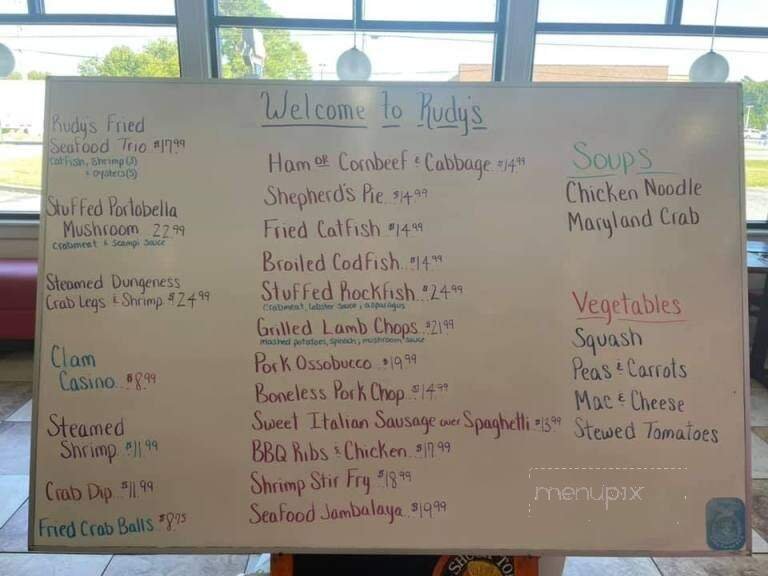 Welcome to Rudy's
Rudy's Fried
Seafood Trio $17.99
Catfish, Shrimp(3)
+ oysters(3)
Stuffed Portobella
Mushroom 22.99
Crabmeat & Scampi Sauce
Steamed Dungeness
Crab Legs & Shrimp $24.99
Clam
Casino...$8.99
Steamed
Shrimp..$11.99
Crab Dip..$11.99
Fried Crab Balls $8.75
Ham or Cornbeef & Cabbage $14.99
Shepherd's Pie..$14.99
Fried Catfish..$14.99
Broiled Codfish...$14.99
Stuffed Rockfish...$24.99
Crabmeat, lobster sauce, asparagus
Grilled Lamb Chops..$21.99
mashed potatoes, spinach, mushroom sauce
Pork Ossobucco..$19.99
Boneless Pork Chop..$14.99
Sweet Italian Sausage over Spaghetti $13.99
BBQ Ribs & Chicken..$17.99
Shrimp Stir Fry $18.99
Seafood Jambalaya..$19.99
Soups
Chicken Noodle
Maryland Crab
Vegetables
Squash
Peas & Carrots
Mac & Cheese
Stewed Tomatoes
menupix